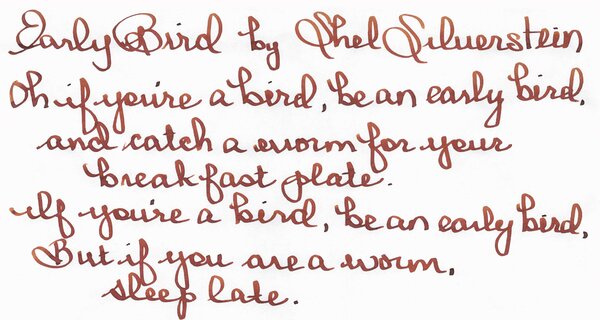 Early Bird by Shel Silverstein
Oh if you're a bird, be an early bird,
and catch a worm for your
breakfast plate.
If you're a bird, be an early bird,
But if you are a worm,
sleep late.